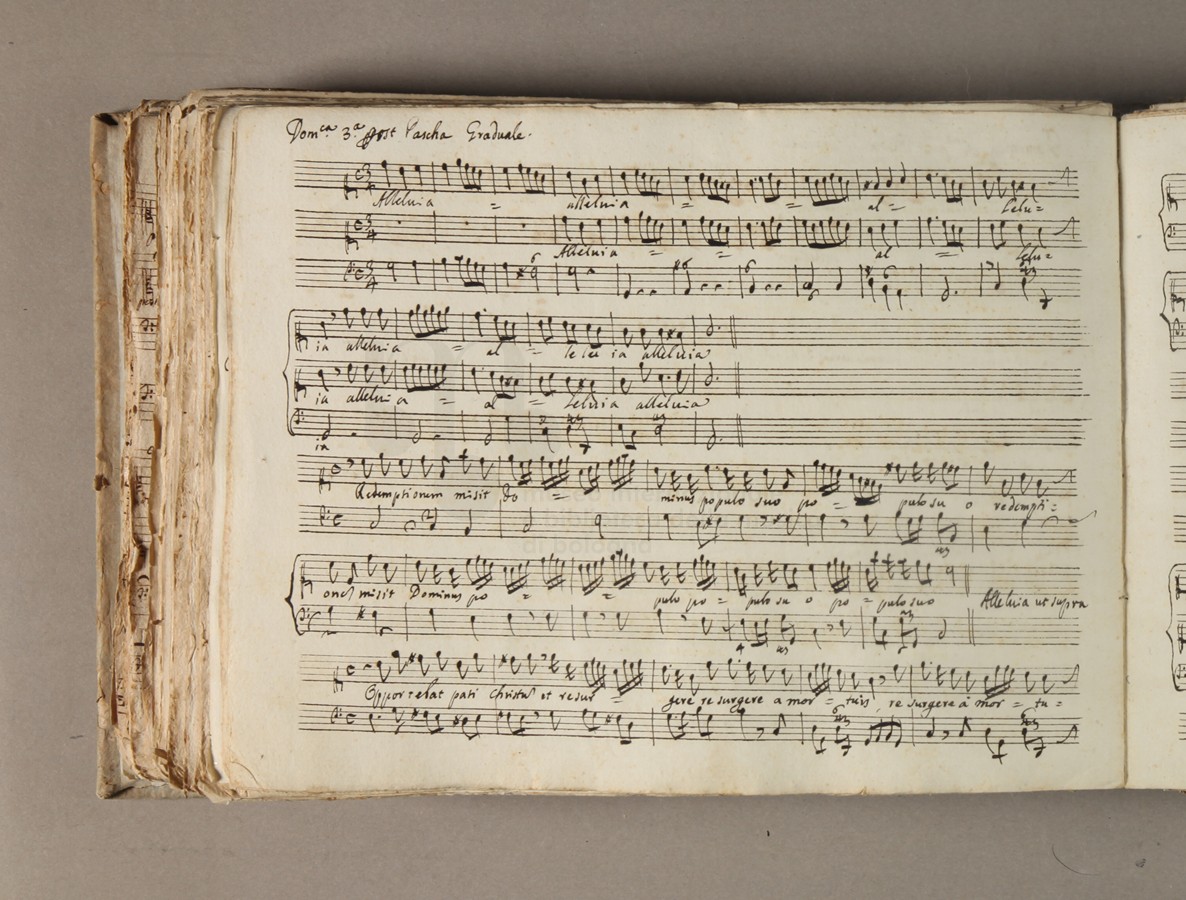 Dom.ca 3.a post Pascha Graduale.
Alleluia = alleluia = = al = Lelu=
Alleluia = = al = Lelu=
ia alleluia = al = le lu ia alleluia
ia alleluia = al = Leluia alleluia
ia
Redemptionem misit Do = minus populo suo po = pulo su o redempti=
onem misit Dominus po = = pulo po = pulo su o po = pulo suo Alleluia ut supra
Opportebat pati Christum et resur = gere resurgere a mor = tuis resurgere à mor = tu=